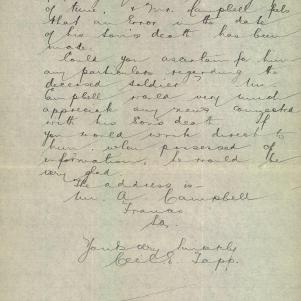 of time. & Mr. Campbell feels
that an Error in the date
of his son's death has been
made.
Could you ascertain for him
any particulars regarding the
deceased soldier Mr
Campbell would very much
appreciate any news connected
with his Son's death if
you would write direct to
him when possessed of
information, he would be
very glad.
The address is -
Mr. A Campbell
Yours very sincerely
Cecil E. Tapp.